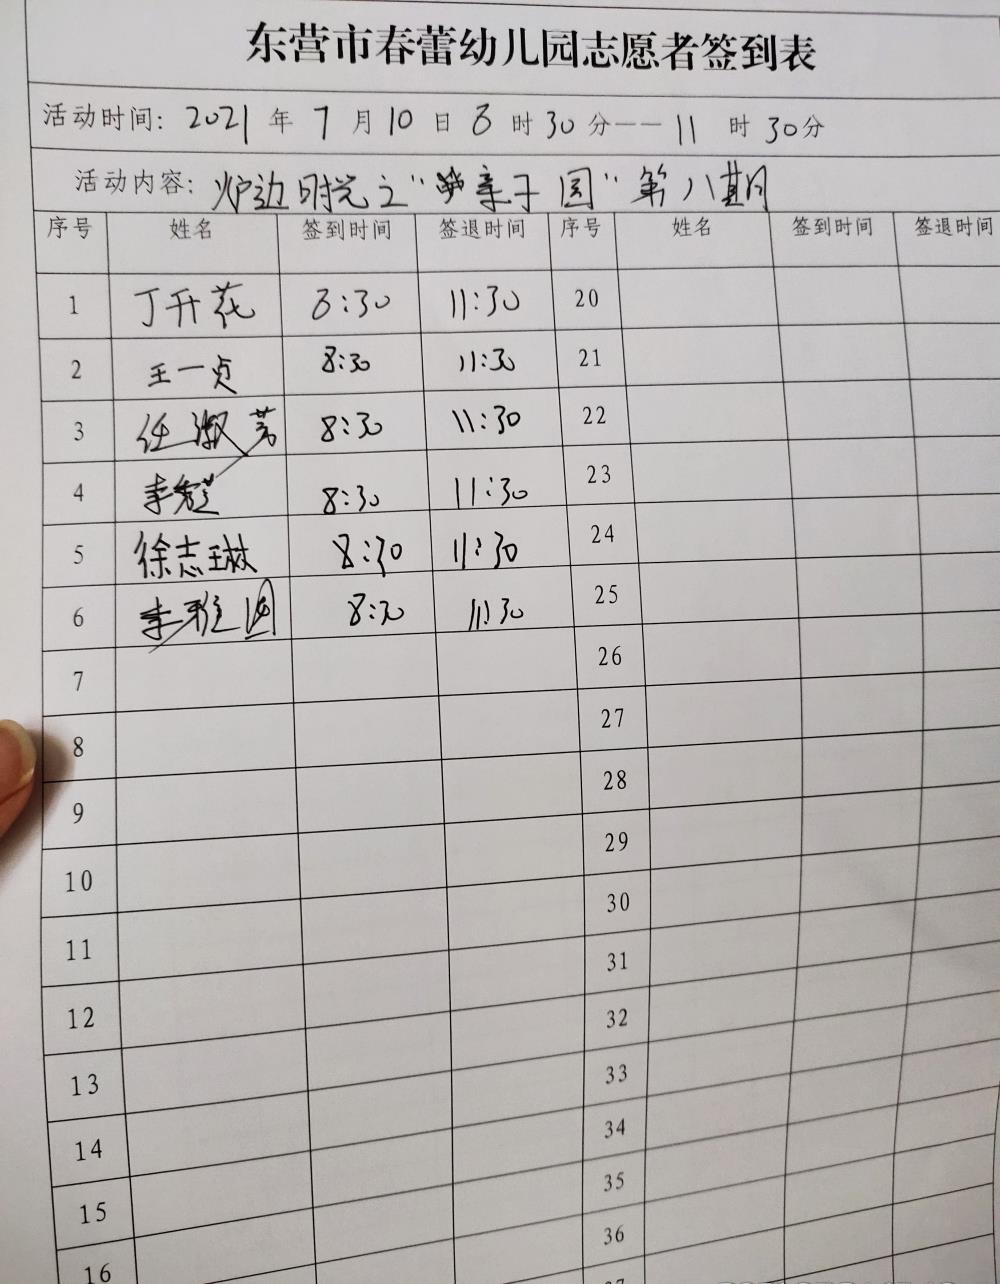 东营市春蕾幼儿园志愿者签到表
活动时间: 2021 年 7 月 10 日 8 时 30 分——11 时 30 分
活动内容: 炉边时光之“亲子园”第八期
序号 姓名 签到时间 签退时间 序号 姓名 签到时间 签退时间
1 丁开花 8:30 11:30 20
2 王一贞 8:30 11:30 21
3 任淑芳 8:30 11:30 22
4 李 8:30 11:30 23
5 徐志琳 8:30 11:30 24
6 李雅 8:30 11:30 25
7 26
8 27
9 28
10 29
11 30
12 31
13 32
14 33
15 34
16 35
36